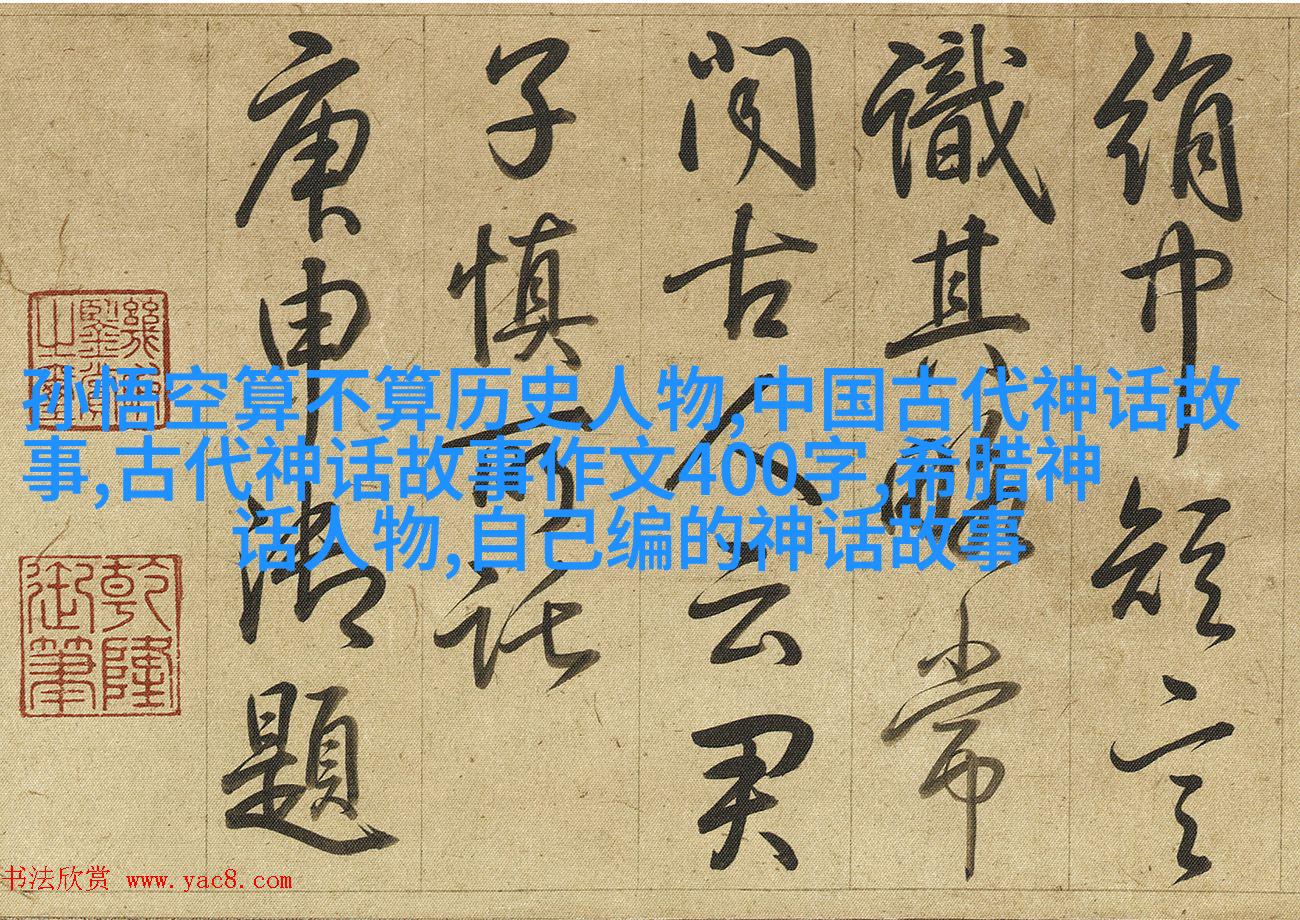 孙悟空算不算历史人物,中国古代神话故
事,古代神话故事作文400字,希腊神
话人物,自己编的神话故事
绢中短言
識其常
聞古人云君
子慎所託
庚申御題
乾隆御筆
书法欣赏 www.yac8.com